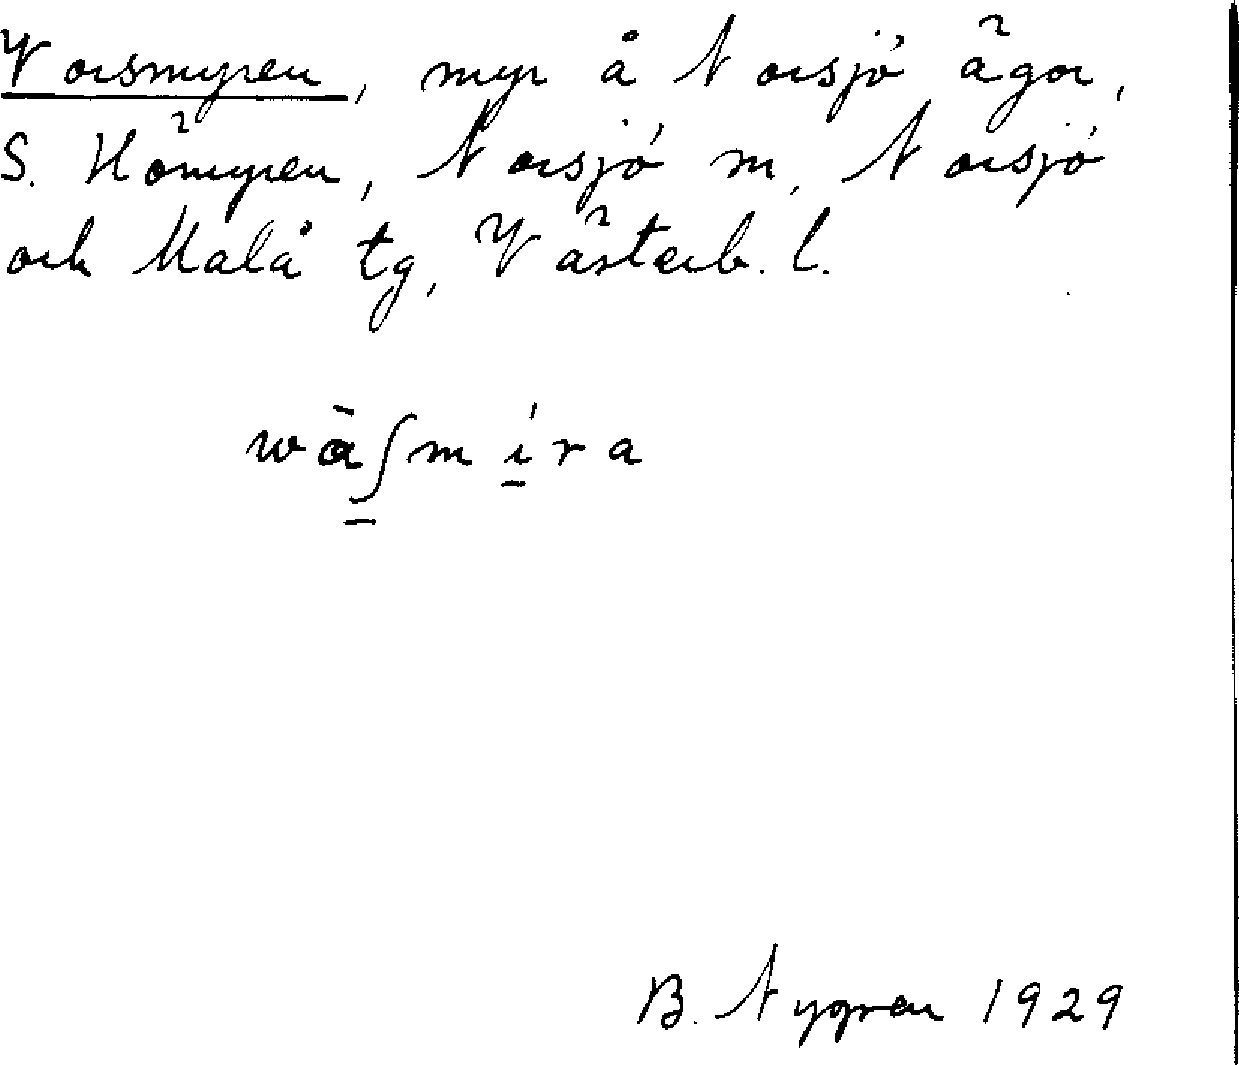 Vorsmyren, myr å Norsjö ägor,
S. Hömyren, Norsjö m, Norsjö
och Malå tg, Västerb. l.
B. Nygren 1929